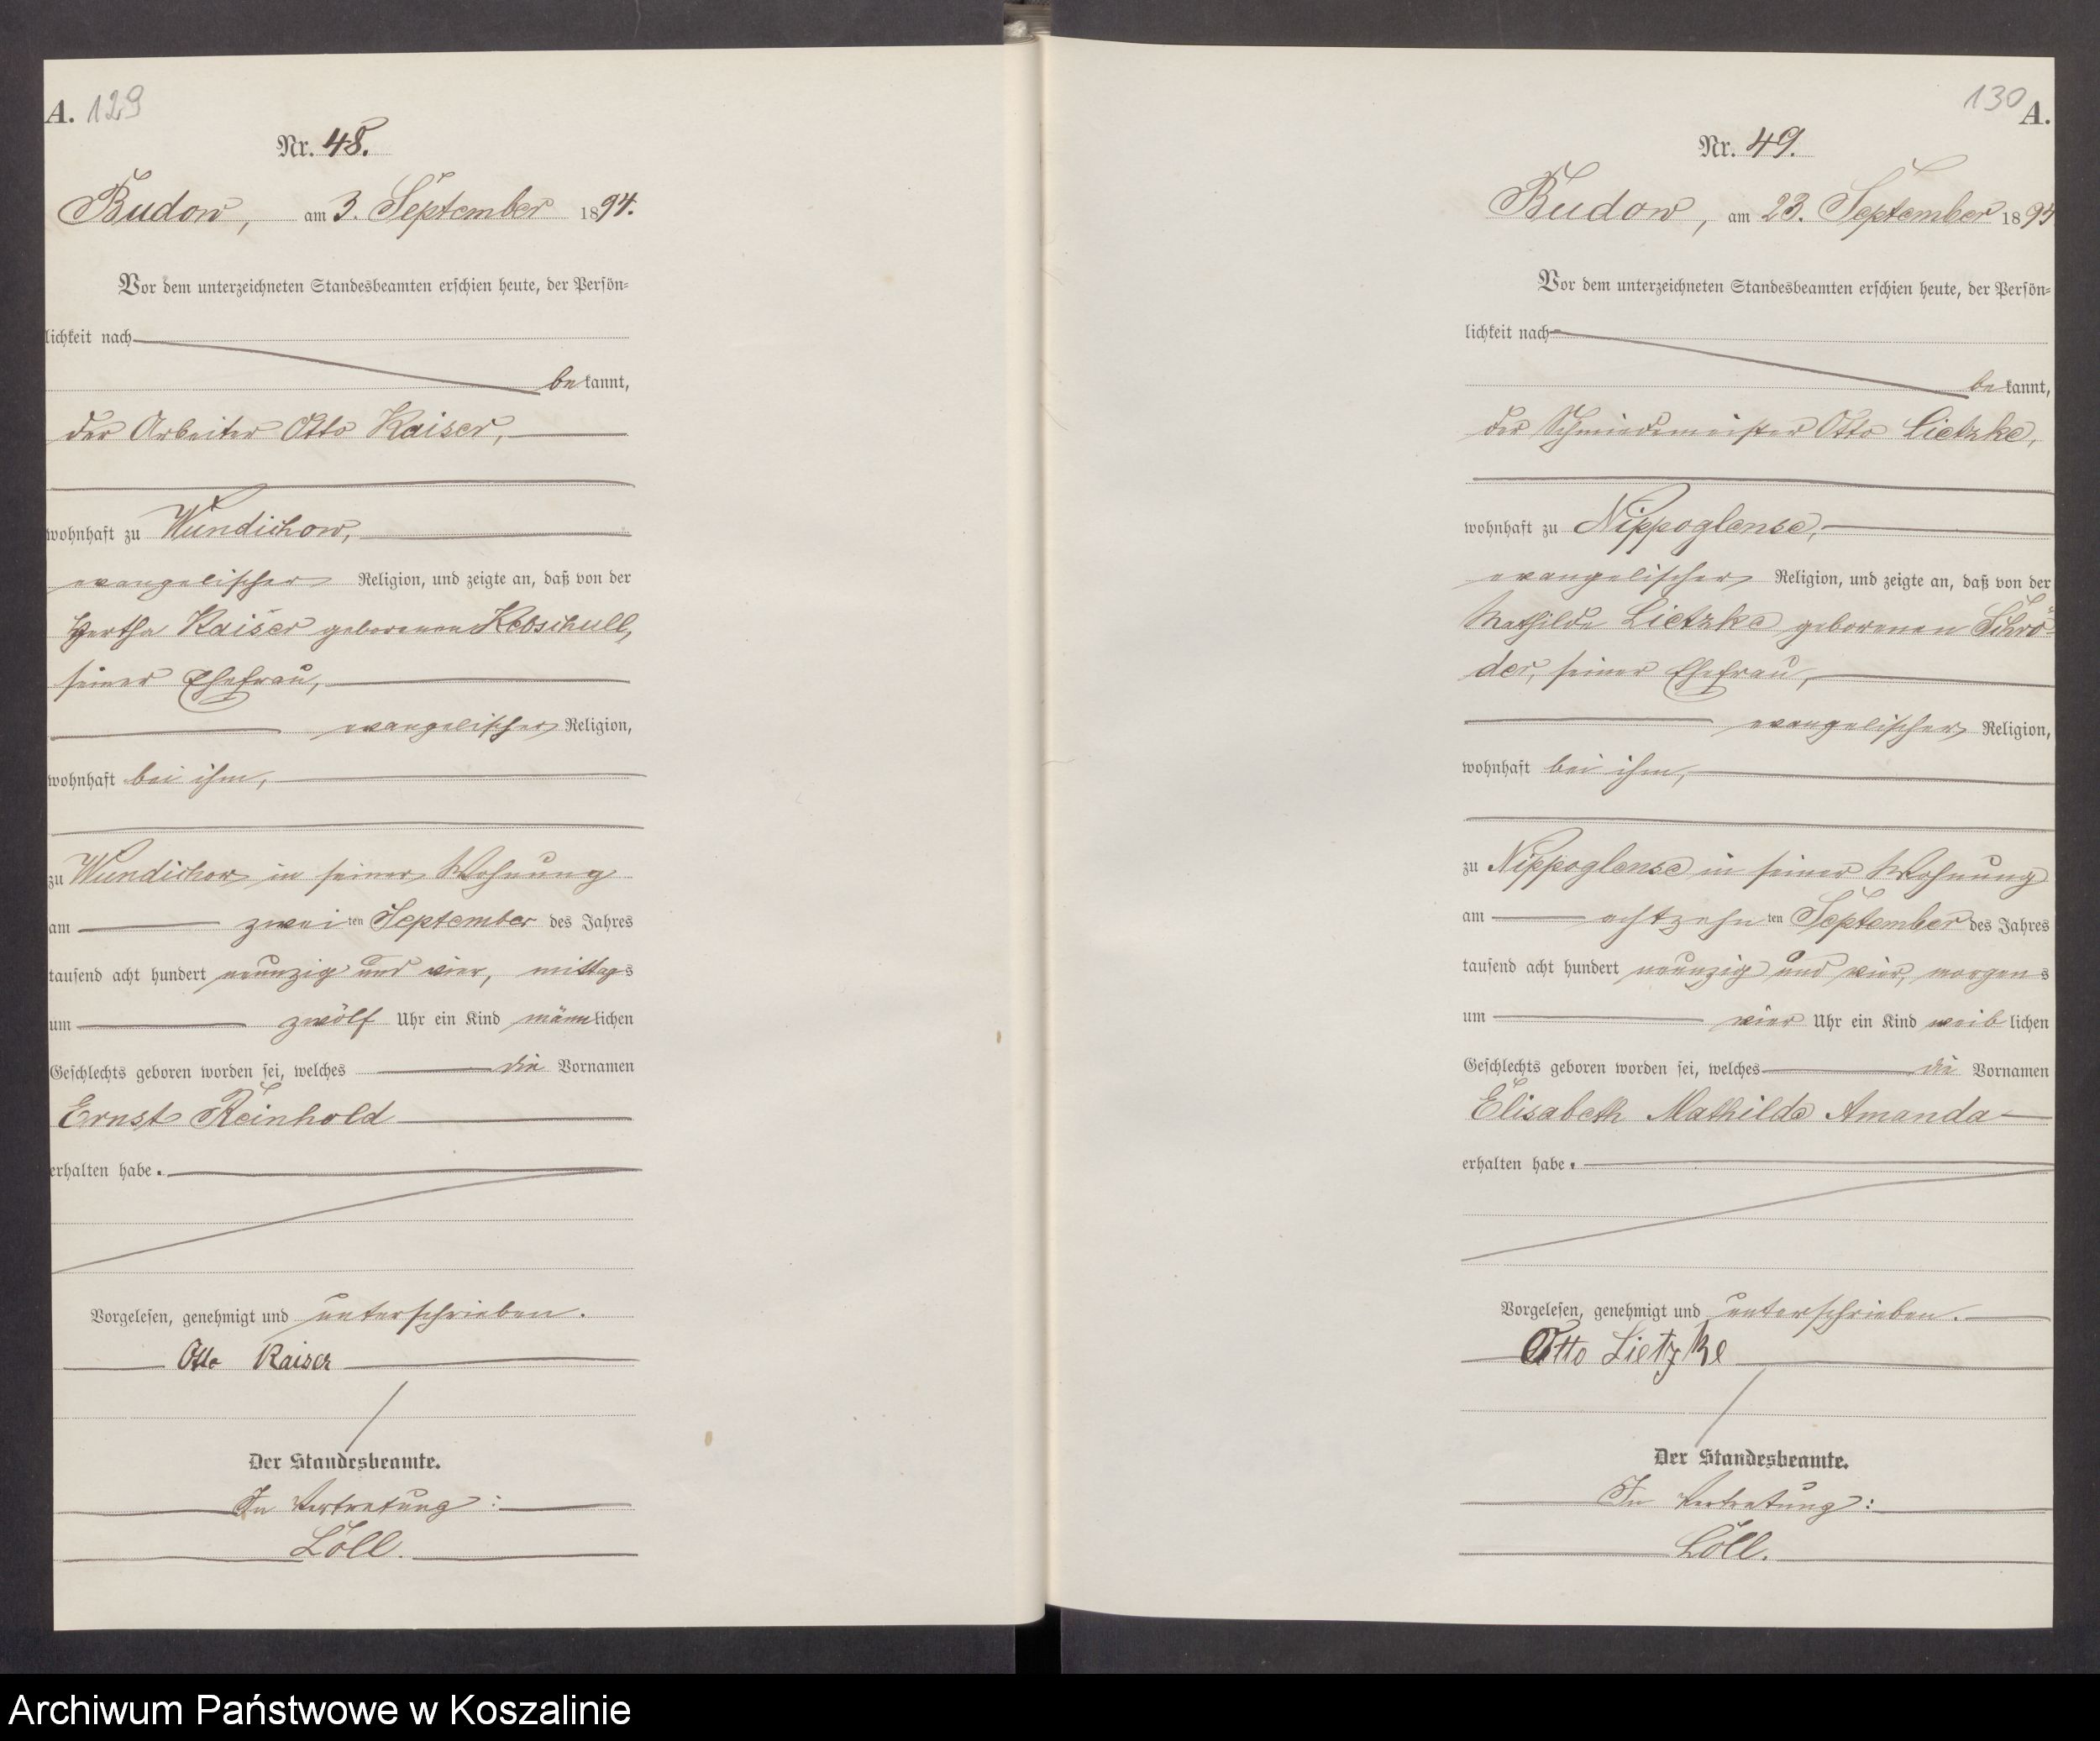 A. 129
Nr. 48.
Budow, am 3. September 1894.
Vor dem unterzeichneten Standesbeamten erschien heute, der Persön-
lichkeit nach
bekannt,
der Arbeiter Otto Kaiser,
wohnhaft zu Wundichow,
evangelischer Religion, und zeigte an, daß von der
Hertha Kaiser geborenen Kebschull,
seiner Ehefrau,
evangelischer Religion,
wohnhaft bei ihm,
zu Wundichow in seiner Wohnung
am zweiten September des Jahres
tausend acht hundert neunzig und vier, mittags
um zwölf Uhr ein Kind männlichen
Geschlechts geboren worden sei, welches die Vornamen
Ernst Reinhold
erhalten habe.
Vorgelesen, genehmigt und unterschrieben.
Otto Kaiser
Der Standesbeamte.
In Vertretung:
Löll.
130 A.
Nr. 49.
Budow, am 23. September 1894
Vor dem unterzeichneten Standesbeamten erschien heute, der Persön-
lichkeit nach
bekannt,
der Schmiedemeister Otto Lietzke,
wohnhaft zu Nippoglense,
evangelischer Religion, und zeigte an, daß von der
Mathilde Lietzke geborenen Schrö-
der, seiner Ehefrau,
evangelischer Religion,
wohnhaft bei ihm,
zu Nippoglense in seiner Wohnung
am achtzehnten September des Jahres
tausend acht hundert neunzig und vier, morgens
um vier Uhr ein Kind weiblichen
Geschlechts geboren worden sei, welches die Vornamen
Elisabeth Mathilde Amanda
erhalten habe.
Vorgelesen, genehmigt und unterschrieben.
Otto Lietzke
Der Standesbeamte.
In Vertretung:
Löll.
Archiwum Państwowe w Koszalinie